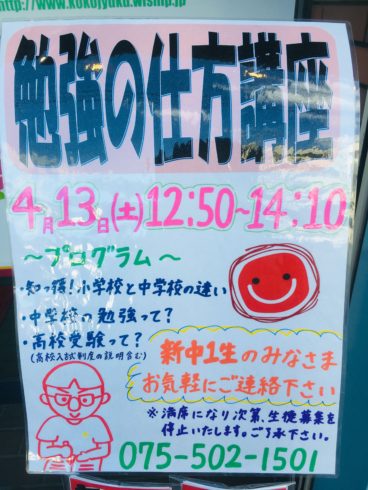 http://www.kokojyuku.wiship.jp
勉強の仕方講座
4月13日(土)12:50~14:10
~プログラム~
・知っ得!小学校と中学校の違い
・中学校の勉強って?
・高校受験って?
(高校入試制度の説明含む)
新中1生のみなさま
お気軽にご連絡下さい
※満席になり次第、生徒募集を
停止いたします。ご了承下さい。
075-502-1501